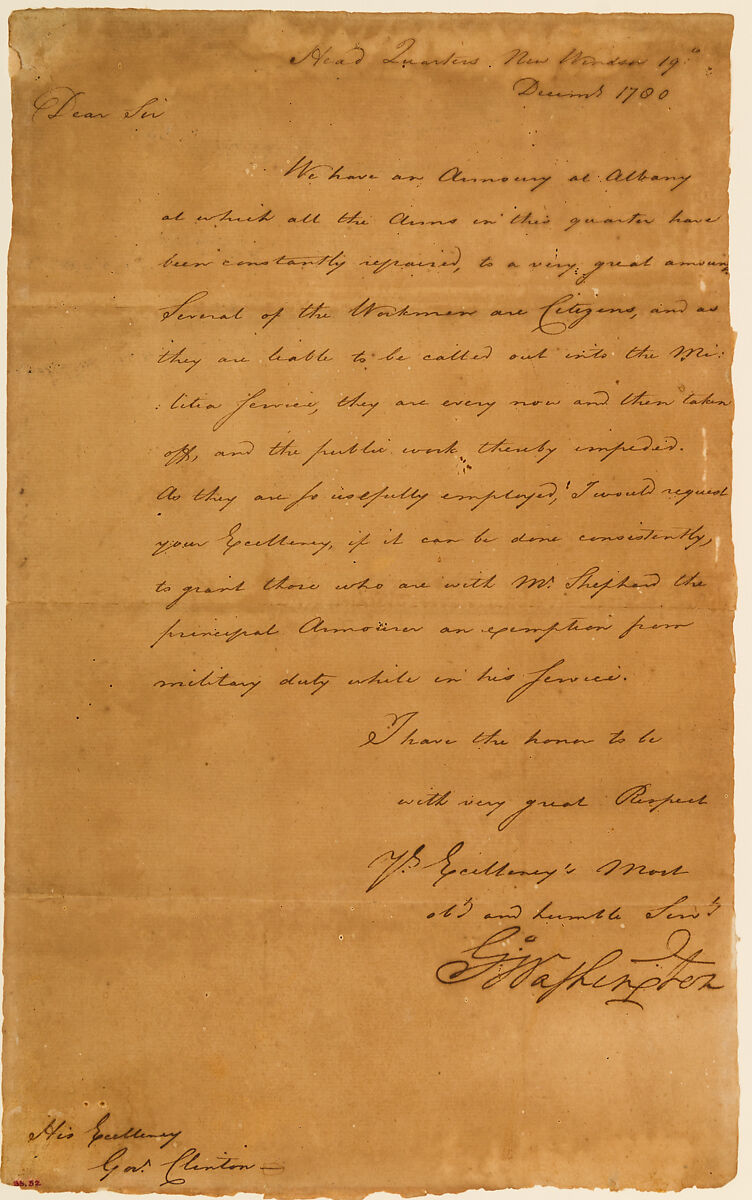 Head Quarters New Windsor 19th
Decemr 1780
Dear Sir
We have an Armoury at Albany
at which all the Arms in this quarter have
been constantly repaired, to a very great amount
Several of the Workmen are Citizens, and as
they are liable to be called out into the Mi:
:litia Service, they are every now and then taken
off, and the public work thereby impeded.
As they are so usefully employed, I would request
your Excellency, if it can be done consistently,
to grant those who are with Mr. Shephard the
principal Armourer an exemption from
military duty while in his Service.
I have the honor to be
with very great Respect
Yr. Excellency's Most
obt. and humble Servt.
Go: Washington
His Excellency
Govr. Clinton —
33.32